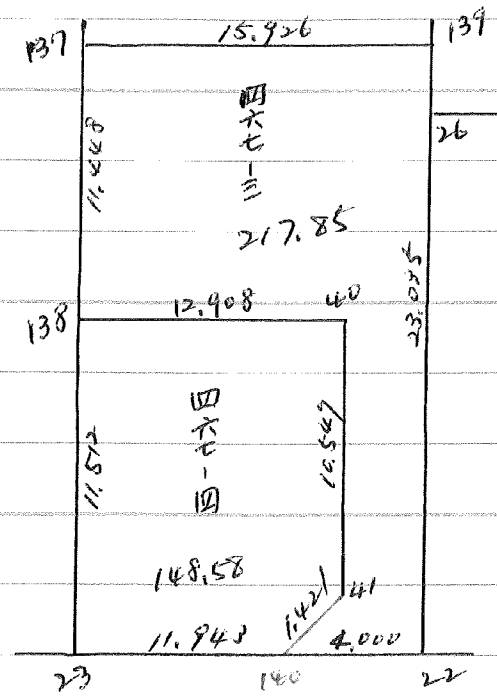 137
15.926
139
26
11.448
四六七-三
217.85
23.035
138
12.908
40
11.512
四六七-四
10.549
148.58
1.421
41
11.943
4.000
23
140
22